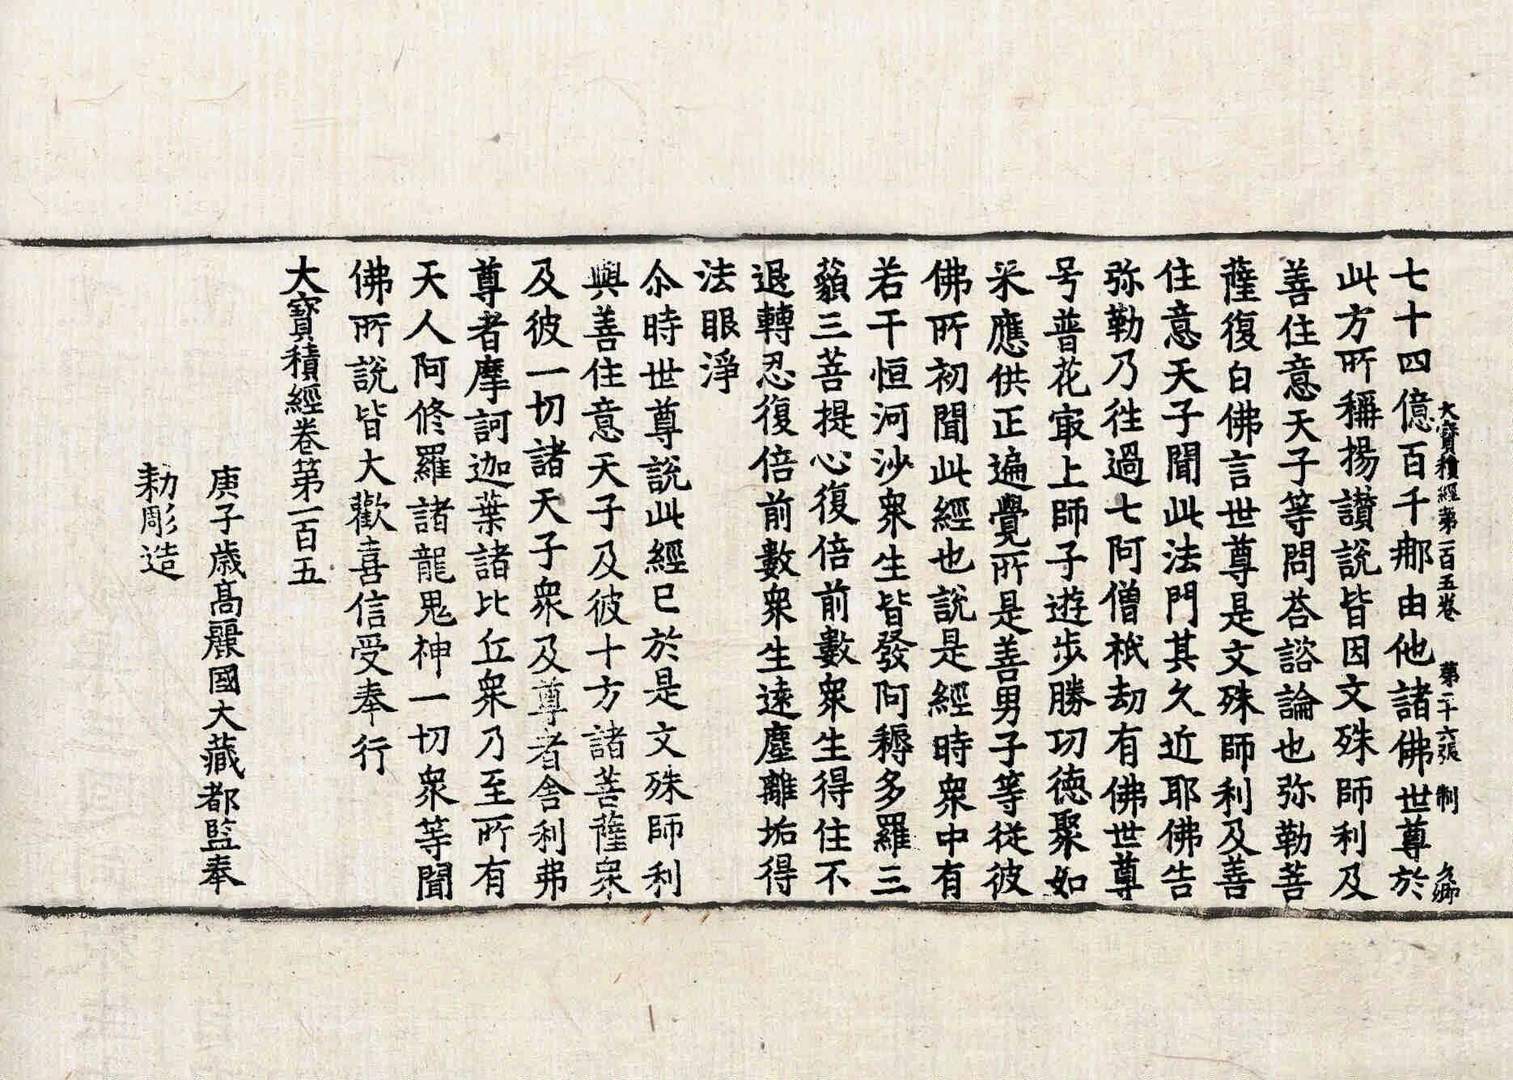 大寶積經第一百五卷 第二十六張 制 久鄉
七十四億百千那由他諸佛世尊於
此方所稱揚讃說皆因文殊師利及
善住意天子等問荅諮論也弥勒菩
薩復白佛言世尊是文殊師利及善
住意天子聞此法門其久近耶佛告
弥勒乃往過七阿僧祇劫有佛世尊
号普花㝡上師子遊步勝功德聚如
来應供正遍覺所是善男子等從彼
佛所初聞此經也說是經時衆中有
若干恒河沙衆生皆發阿耨多羅三
藐三菩提心復倍前數衆生得住不
退轉忍復倍前數衆生遠塵離垢得
法眼淨
尒時世尊說此經已於是文殊師利
與善住意天子及彼十方諸菩薩衆
及彼一切諸天子衆及尊者舎利弗
尊者摩訶迦葉諸比丘衆乃至所有
天人阿修羅諸龍鬼神一切衆等聞
佛所說皆大歡喜信受奉行
大寶積經卷第一百五
庚子歲高麗國大藏都監奉
勅彫造